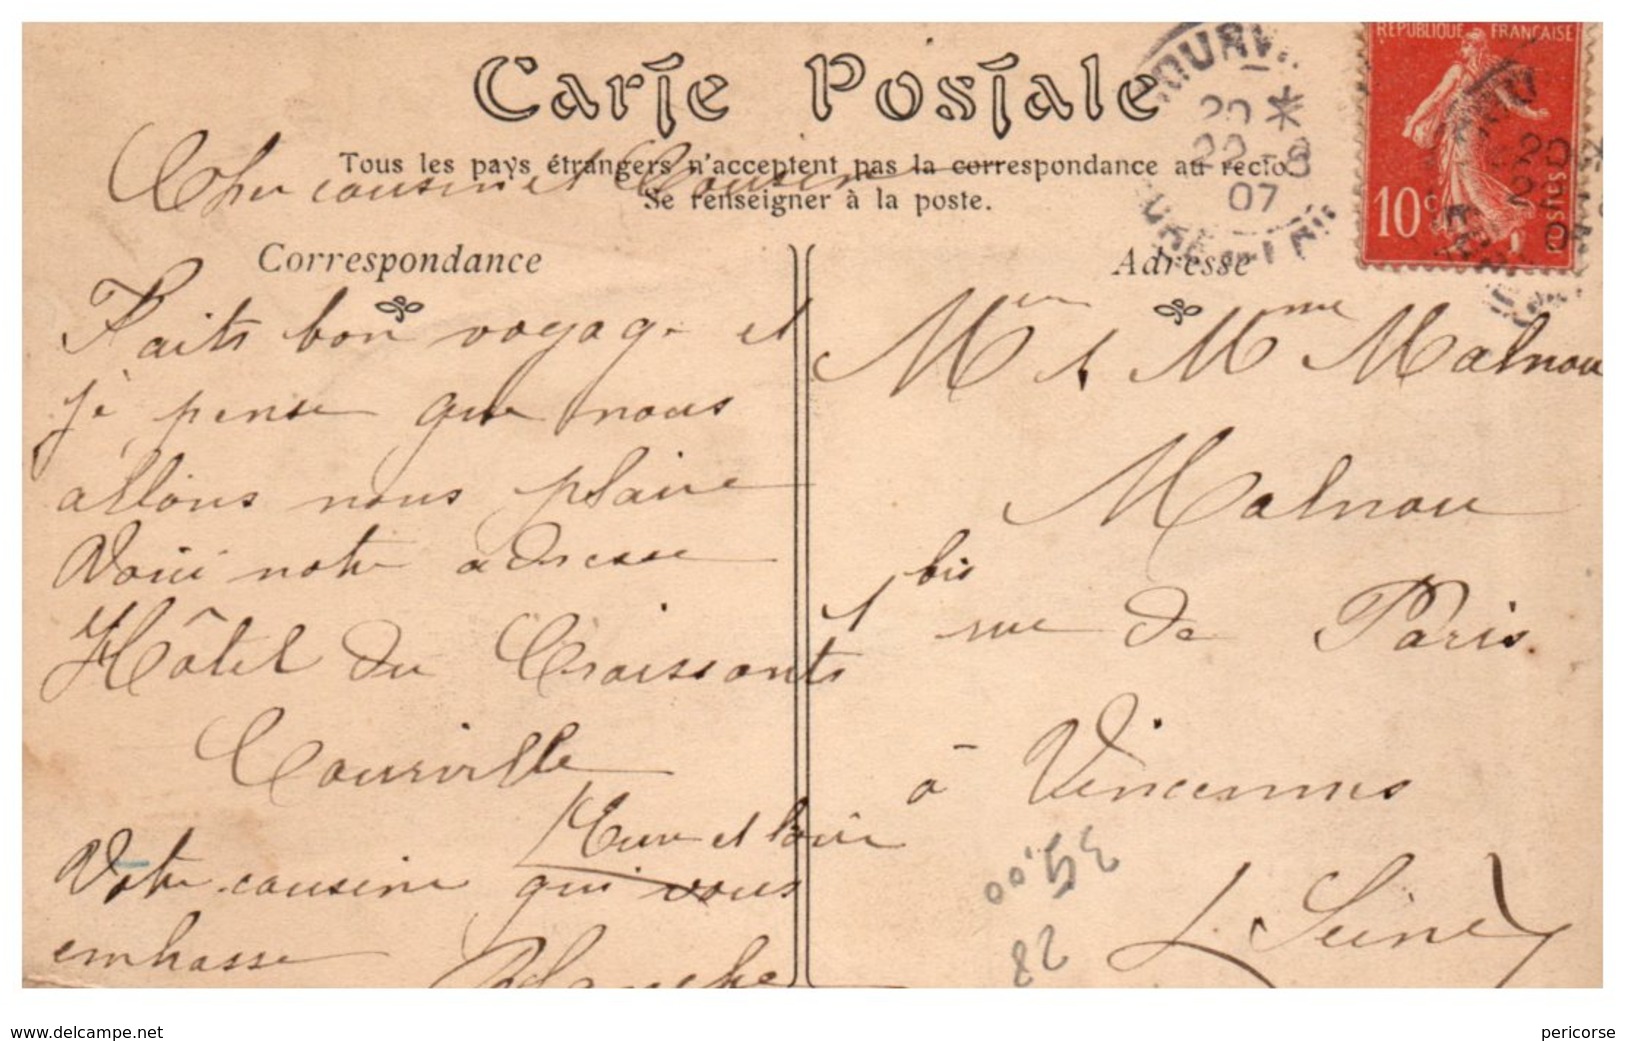 Carte Postale
Cher cousin et Cousine
Tous les pays étrangers n'acceptent pas la correspondance au recto.
Se renseigner à la poste.
RÉPUBLIQUE FRANÇAISE
10c
POSTES
20 *
22 - 8
07
Correspondance
Faits bon voyage et
je pense que nous
allons nous plaire
Voici notre adresse
Hôtel du Croissants
Courville
Eure et Loir
Votre cousine qui vous
embrasse
Blanche
Adresse
Mr et Mme Malnou
Malnou
1 bis rue de Paris.
à Vincennes
Seine
35.00
28
www.delcampe.net
pericorse